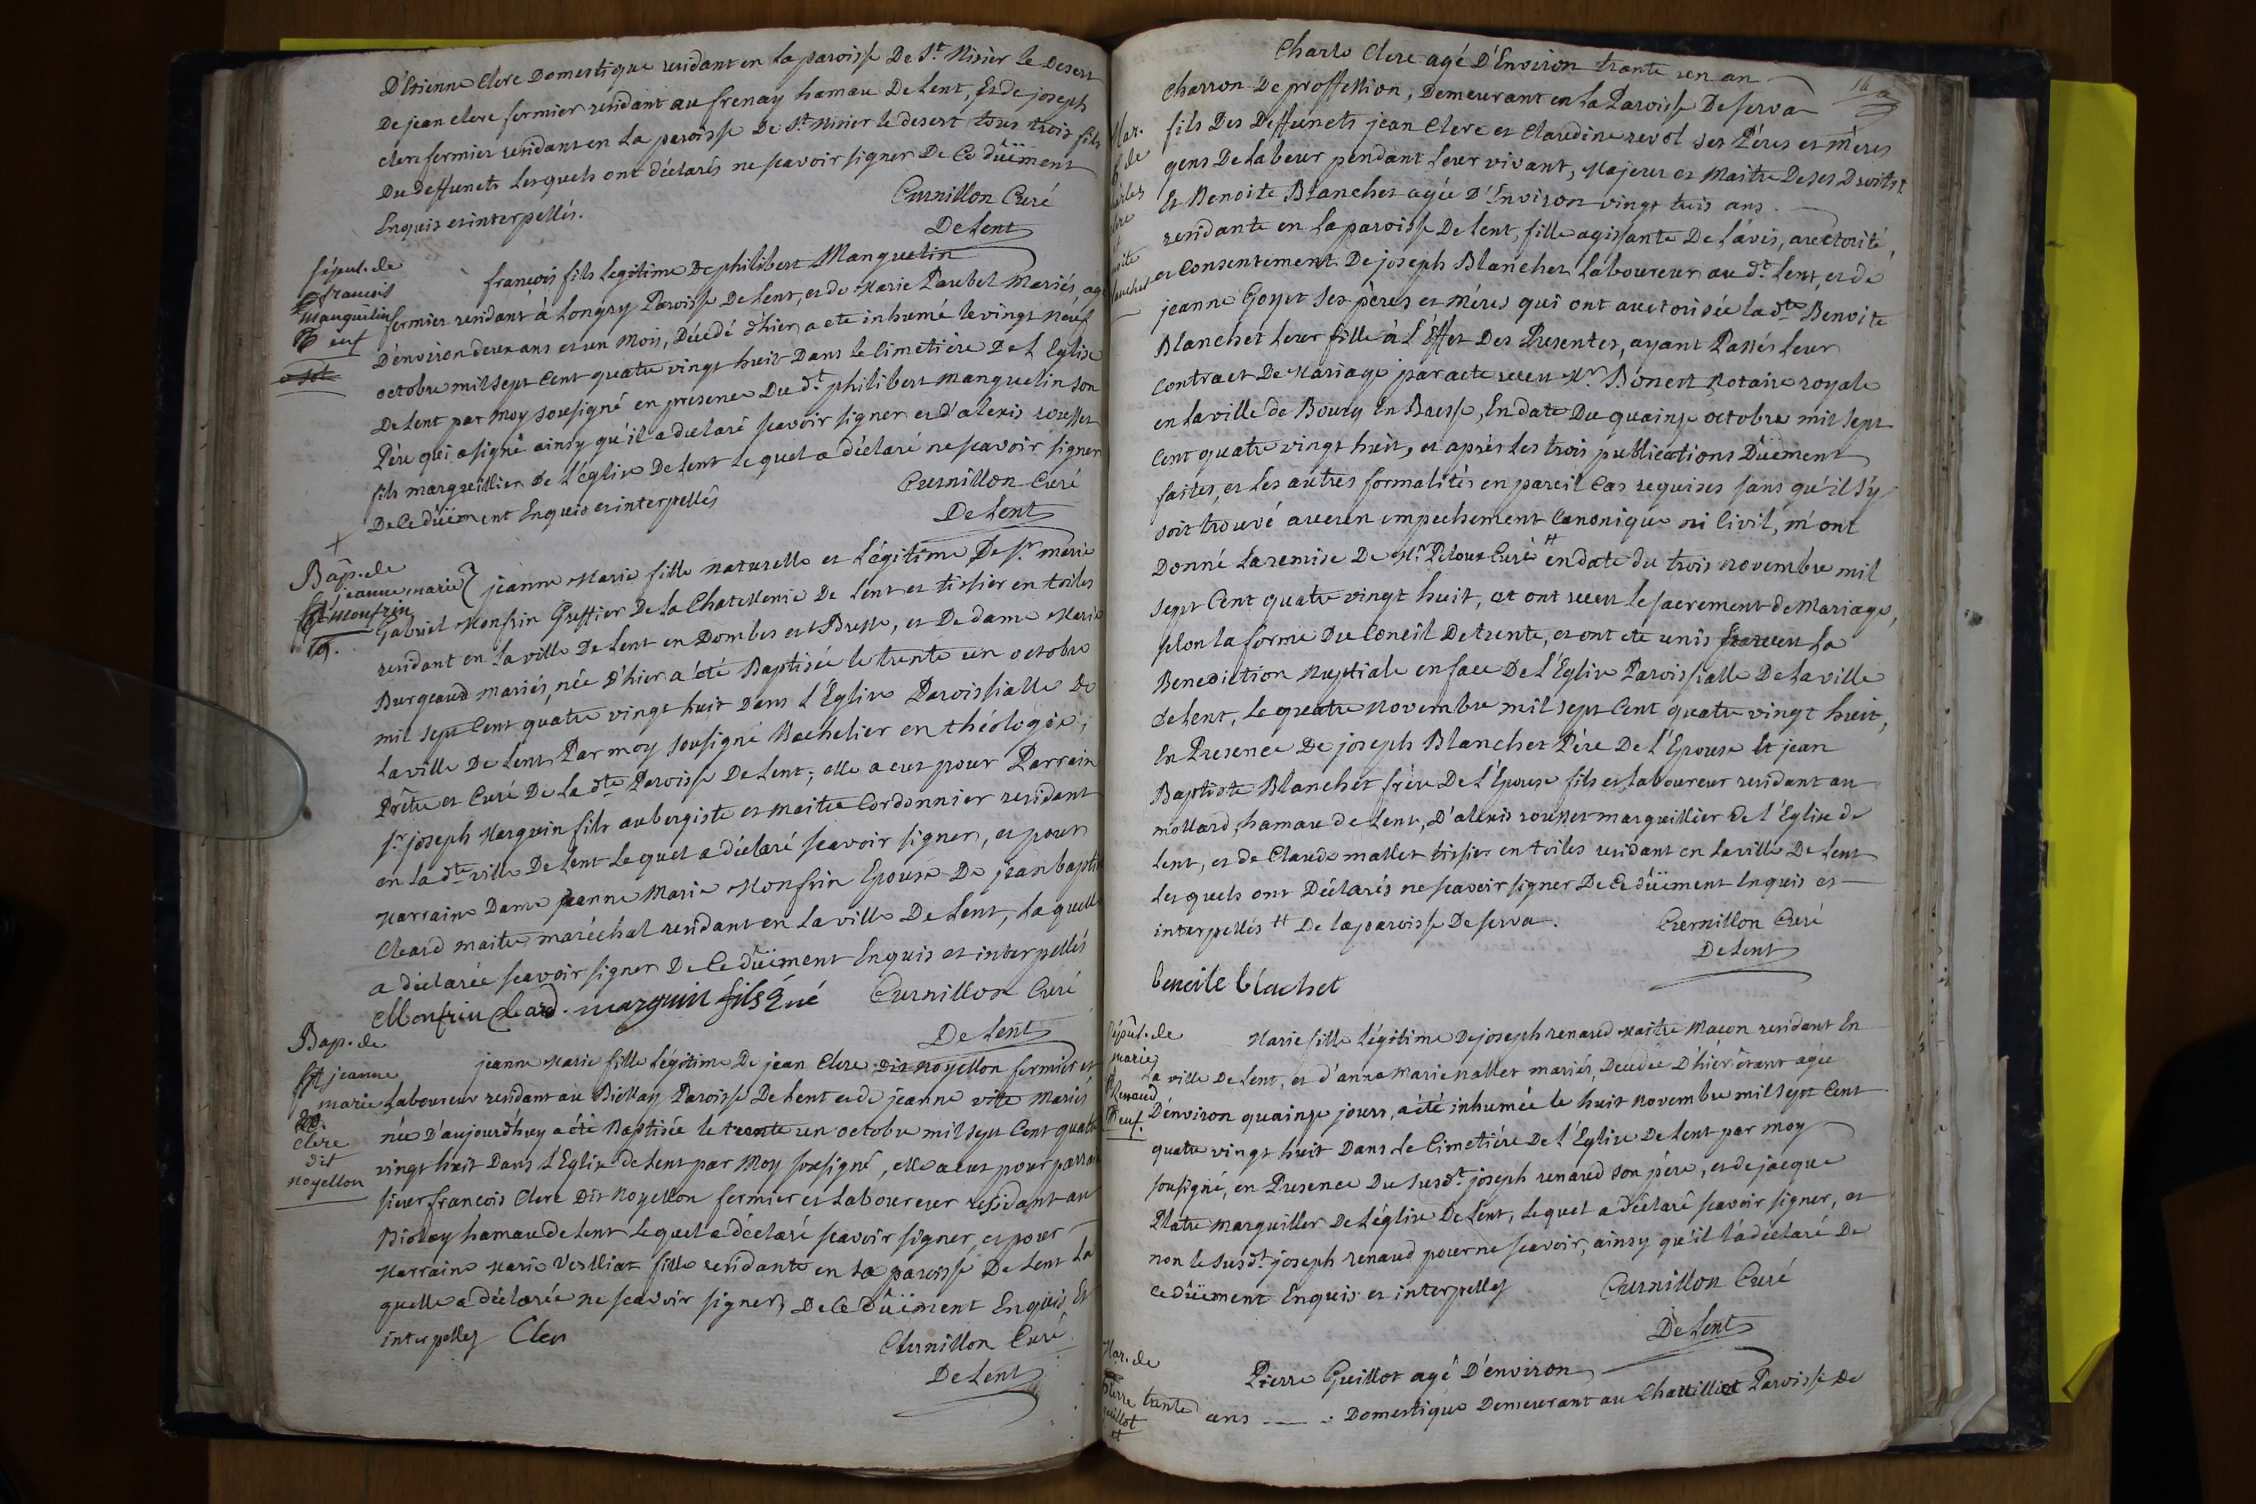 D'Etienne Clerc Domestique residant en la paroisse De St. Nisier le Desert
De jean clerc fermier residant au frenay hamau De Lent, Et de joseph
clerc fermier residant en la paroisse De St. Nisier le desert tous trois fils
Du deffunets Lesquels ont déclarés ne scavoir signer De Ce düëment
Enquis et interpellés.
Curnillon Curé
De Lent
sépul. de
françois
Manguelin
neuf
françois fils Legitime De philibert Manguelin
fermier residant à Longry Paroisse De Lent, et de Marie Paubel Mariés, agé
D'environ deux ans et un Mois, Décédé d'hier a ete inhumé le vingt neuf
octobre mil sept Cent quatre vingt huit Dans le Cimetiere De L'Eglise
De Lent par moy sousigné en presence Du dt. philibert manguelin son
Pére qui a signé ainsy qu'il a declaré scavoir signer et d'alexis rousset
fils margueillier de l'église De Lent le quel a déclaré ne scavoir signer
De Ce düëment Enquis et interpellés
Curnillon Curé
De Lent
Bap. de
jeanne marie
Monfrin
jeanne Marie fille naturelle et Légitime De sr. marie
Gabriel Monfrin Greffier De la Chatellenie De Lent et tissier en toiles
residant en La ville De Lent en Dombes et Bresse, et De dame Marie
Burgeaud mariés, née d'hier a été Baptisée le trente un octobre
mil sept Cent quatre vingt huit Dans L'Eglise Paroissialle De
La ville De Lent Par moy sousigné Bachelier en théologie,
Prêtre et Curé De La dte. Paroisse De Lent; elle a eut pour Parrain
sr. joseph Marguin fils aubergiste et maitre Cordonnier residant
en La dte. ville De Lent Le quel a déclaré scavoir signer, et pour
Marraine Dame jeanne Marie Monfrin Epouse De jean baptiste
Cleard maitre maréchal residant en La ville De Lent, La quelle
a déclarée scavoir signer De Ce düëment Enquis et interpellés
Monfrin Cleard. marguin fils Ené Curnillon Curé
De Lent
Bap. de
jeanne
marie
Clerc
dit
noyellon
jeanne Marie fille Légitime De jean Clerc dit noyellon fermier et
Laboureur residant au Biollay Paroisse De Lent et de jeanne vite Mariés
née D'aujourd'huy a été Baptisée le trente un octobre mil sept Cent quatre
vingt huit Dans L'Eglise de Lent par Moy sousigné, elle a eut pour parrain
sieur françois Clerc Dit Noyellon fermier et Laboureur residant au
Biolay hamau de Lent Le quel a déclaré scavoir signer, et pour
Marraine Marie Verlliat fille residante en La paroisse De Lent La
quelle a déclarée ne scavoir signer De Ce düëment Enquis Et
interpellez Cler
Curnillon Curé
De Lent
Charle Clerc agé D'Environ trante un an
Charron De proffession, Demeurant en La Paroisse De serva
fils Des Deffunets jean Clerc et Claudine revol ses Péres et méres
gens De Labeur pendant Leur vivant, Majeur et Maitre De ses Droits
Et Benoite Blanchet agée D'Environ vingt trois ans
residante en La paroisse De Lent, fille agissante De L'avis, auctorité,
et Consentement De joseph Blanchet Laboureur au dt. Lent, et de
jeanne Goyet ses péres et méres qui ont auctorisée La dte. Benoite
Blanchet Leur fille à L'Effet Des Presentes, ayant Passés Leur
Contract De Mariage par acte receu Mr. Bonest Notaire royale
en La ville de Bourg En Bresse, En date Du quainze octobre mil sept
Cent quatre vingt huit, et après Les trois publications Düëment
faites, et Les autres formalités en pareil Cas requises sans qu'il s'y
soit trouvé aucun empechement Canonique ni Civil, m'ont
Donné La remise De Mr. Peloux Curé # en date du trois novembre mil
sept Cent quatre vingt huit, et ont receu le sacrement de Mariage,
selon la forme Du Concil De trente, et ont ete unis La
Benediction Nuptiale en face De L'Eglise Paroissialle De La ville
de Lent, Le quatre novembre mil sept Cent quatre vingt huit,
En Presence De joseph Blanchet Pére De L'Epouse Et jean
Baptiste Blanchet frére De L'Epouse fils et Laboureur residant au
mollard, hamau de Lent, D'alexis rousset margueillier de L'Eglise de
Lent, et de Claude mallet tissier en toiles residant en La ville De Lent
Les quels ont Déclarés ne scavoir signer De Ce düëment Enquis et
interpellés # De La paroisse De serva.
Curnillon Curé
De Lent
benoite blachet
sépul. de
marie
Renaud
neuf.
Marie fille Légitime De joseph renaud Maitre Macon residant En
La ville De Lent, et d'anne marie nallet mariés, Decedée D'hier étant agée
D'environ quainze jours, a été inhumée le huit novembre mil sept Cent
quatre vingt huit Dans Le Cimetiére De L'Eglise De Lent par moy
sousigné, en Presence Du susdt. joseph renaud son pére, et de jacque
Platre marguiller De L'église De Lent, Lequel a déclaré scavoir signer, et
non le susdt. joseph renaud pour ne scavoir, ainsy qu'il l'a déclaré De
Ce düëment Enquis et interpellez
Curnillon Curé
De Lent
Mar. de
pierre
guillot
et
Pierre Guillot agé D'environ
trante ans Domestique Demeurant au Chatilliot Paroisse De